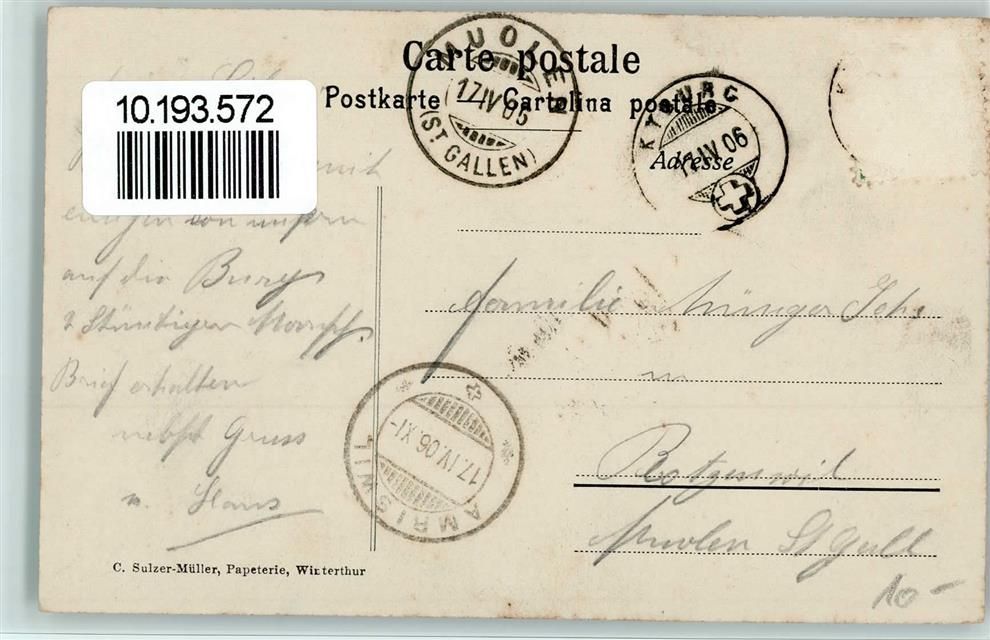 Carte postale
Postkarte — Cartolina postale
Adresse
10.193.572
MUOLEN
17.IV 06
(ST GALLEN)
KYBURG
17.IV 06
mit
einigen von unsern
auf die Burg
2 Stündiger Marsch.
Brief erhalten
nebst Gruss
v. Hans
AMRISWIL
17.IV.06.XI-
Familie Münger Jchs
in
Rotzenwil
Muolen St Gall
C. Sulzer-Müller, Papeterie, Winterthur
10-